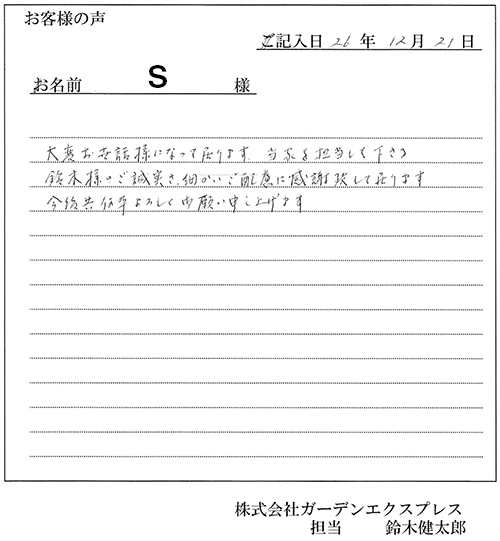 お客様の声
ご記入日 26 年 12 月 21 日
お名前 S 様
大変お世話様になって居ります 当家を担当して下さる
鈴木様のご誠実さ、細かいご配慮に感謝致して居ります
今後共何卒よろしく御願い申し上げます
株式会社ガーデンエクスプレス
担当 鈴木健太郎